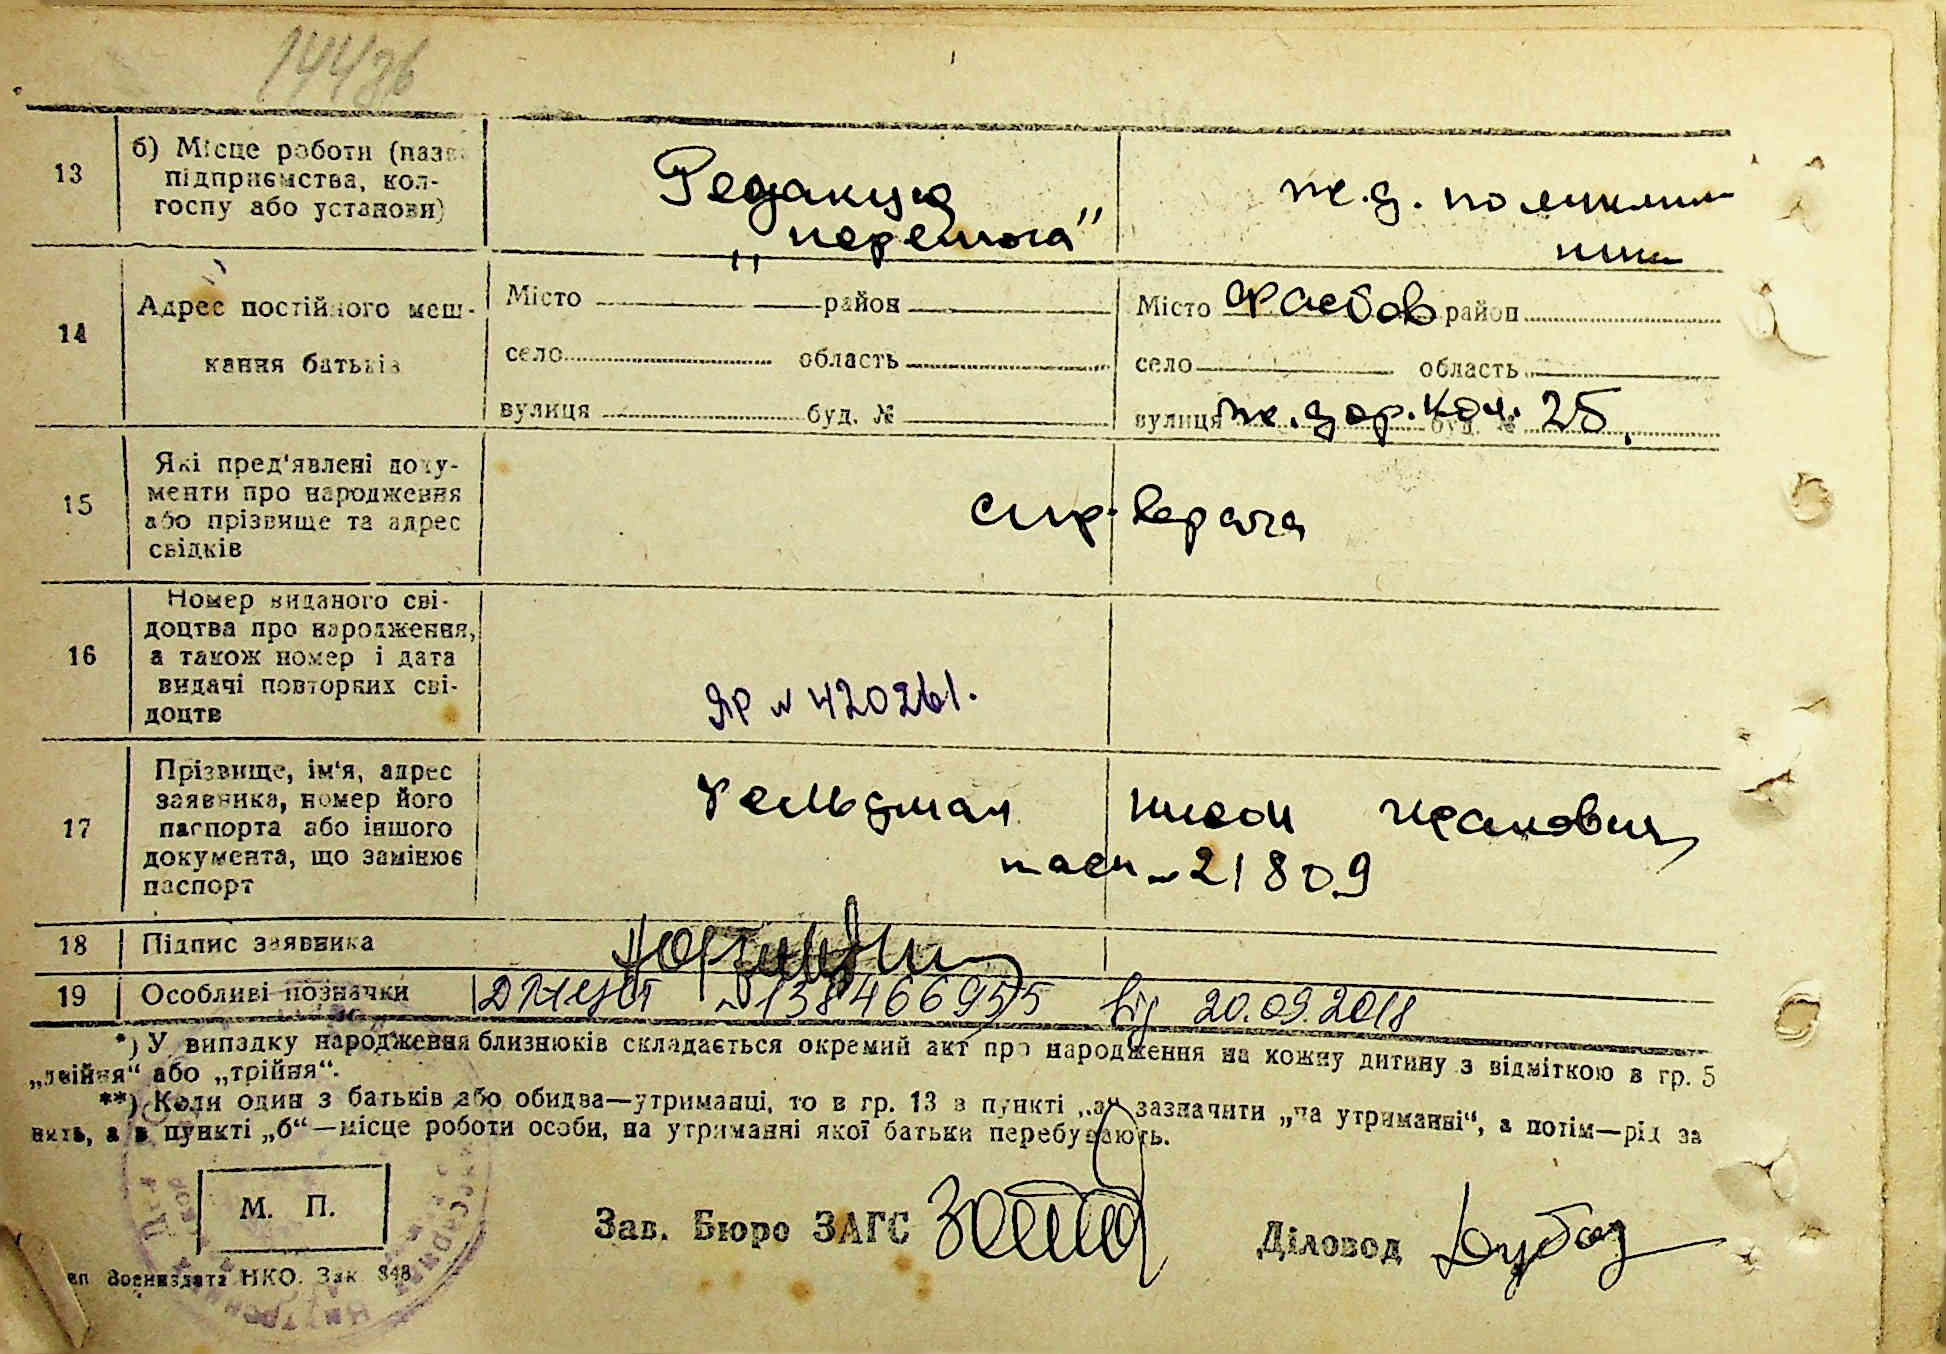 13
б) Місце роботи (назва
підприємства, кол-
госпу або установи)
Редакция
„перемога"
ж.д. поликлин
14
Адрес постійного меш-
кання батьків
Місто район
село область
вулиця буд. №
Місто Фастов район
село область
вулиця буд. № 25.
15
Які пред'явлені доку-
менти про народження
або прізвище та адрес
свідків
спр. врача
16
Номер виданого сві-
доцтва про народження,
а також номер і дата
видачі повторних сві-
доцтв
ЯР № 420261.
17
Прізвище, ім'я, адрес
заявника, номер його
паспорта або іншого
документа, що замінює
паспорт
Фельдман
пасп № 21809
18 Підпис заявника
19 Особливі позначки № 138466955 від 20.09.2018
*) У випадку народження близнюків складається окремий акт про народження на кожну дитину з відміткою в гр. 5
„двійня“ або „трійня“.
**) Коли один з батьків або обидва—утриманці, то в гр. 13 в пункті „а“ зазначити „на утриманні“, а потім—рід за
нять, а в пункті „б“—місце роботи особи, на утриманні якої батьки перебувають.
М. П.
Зав. Бюро ЗАГС
Діловод
Воениздата НКО. Зак. 848